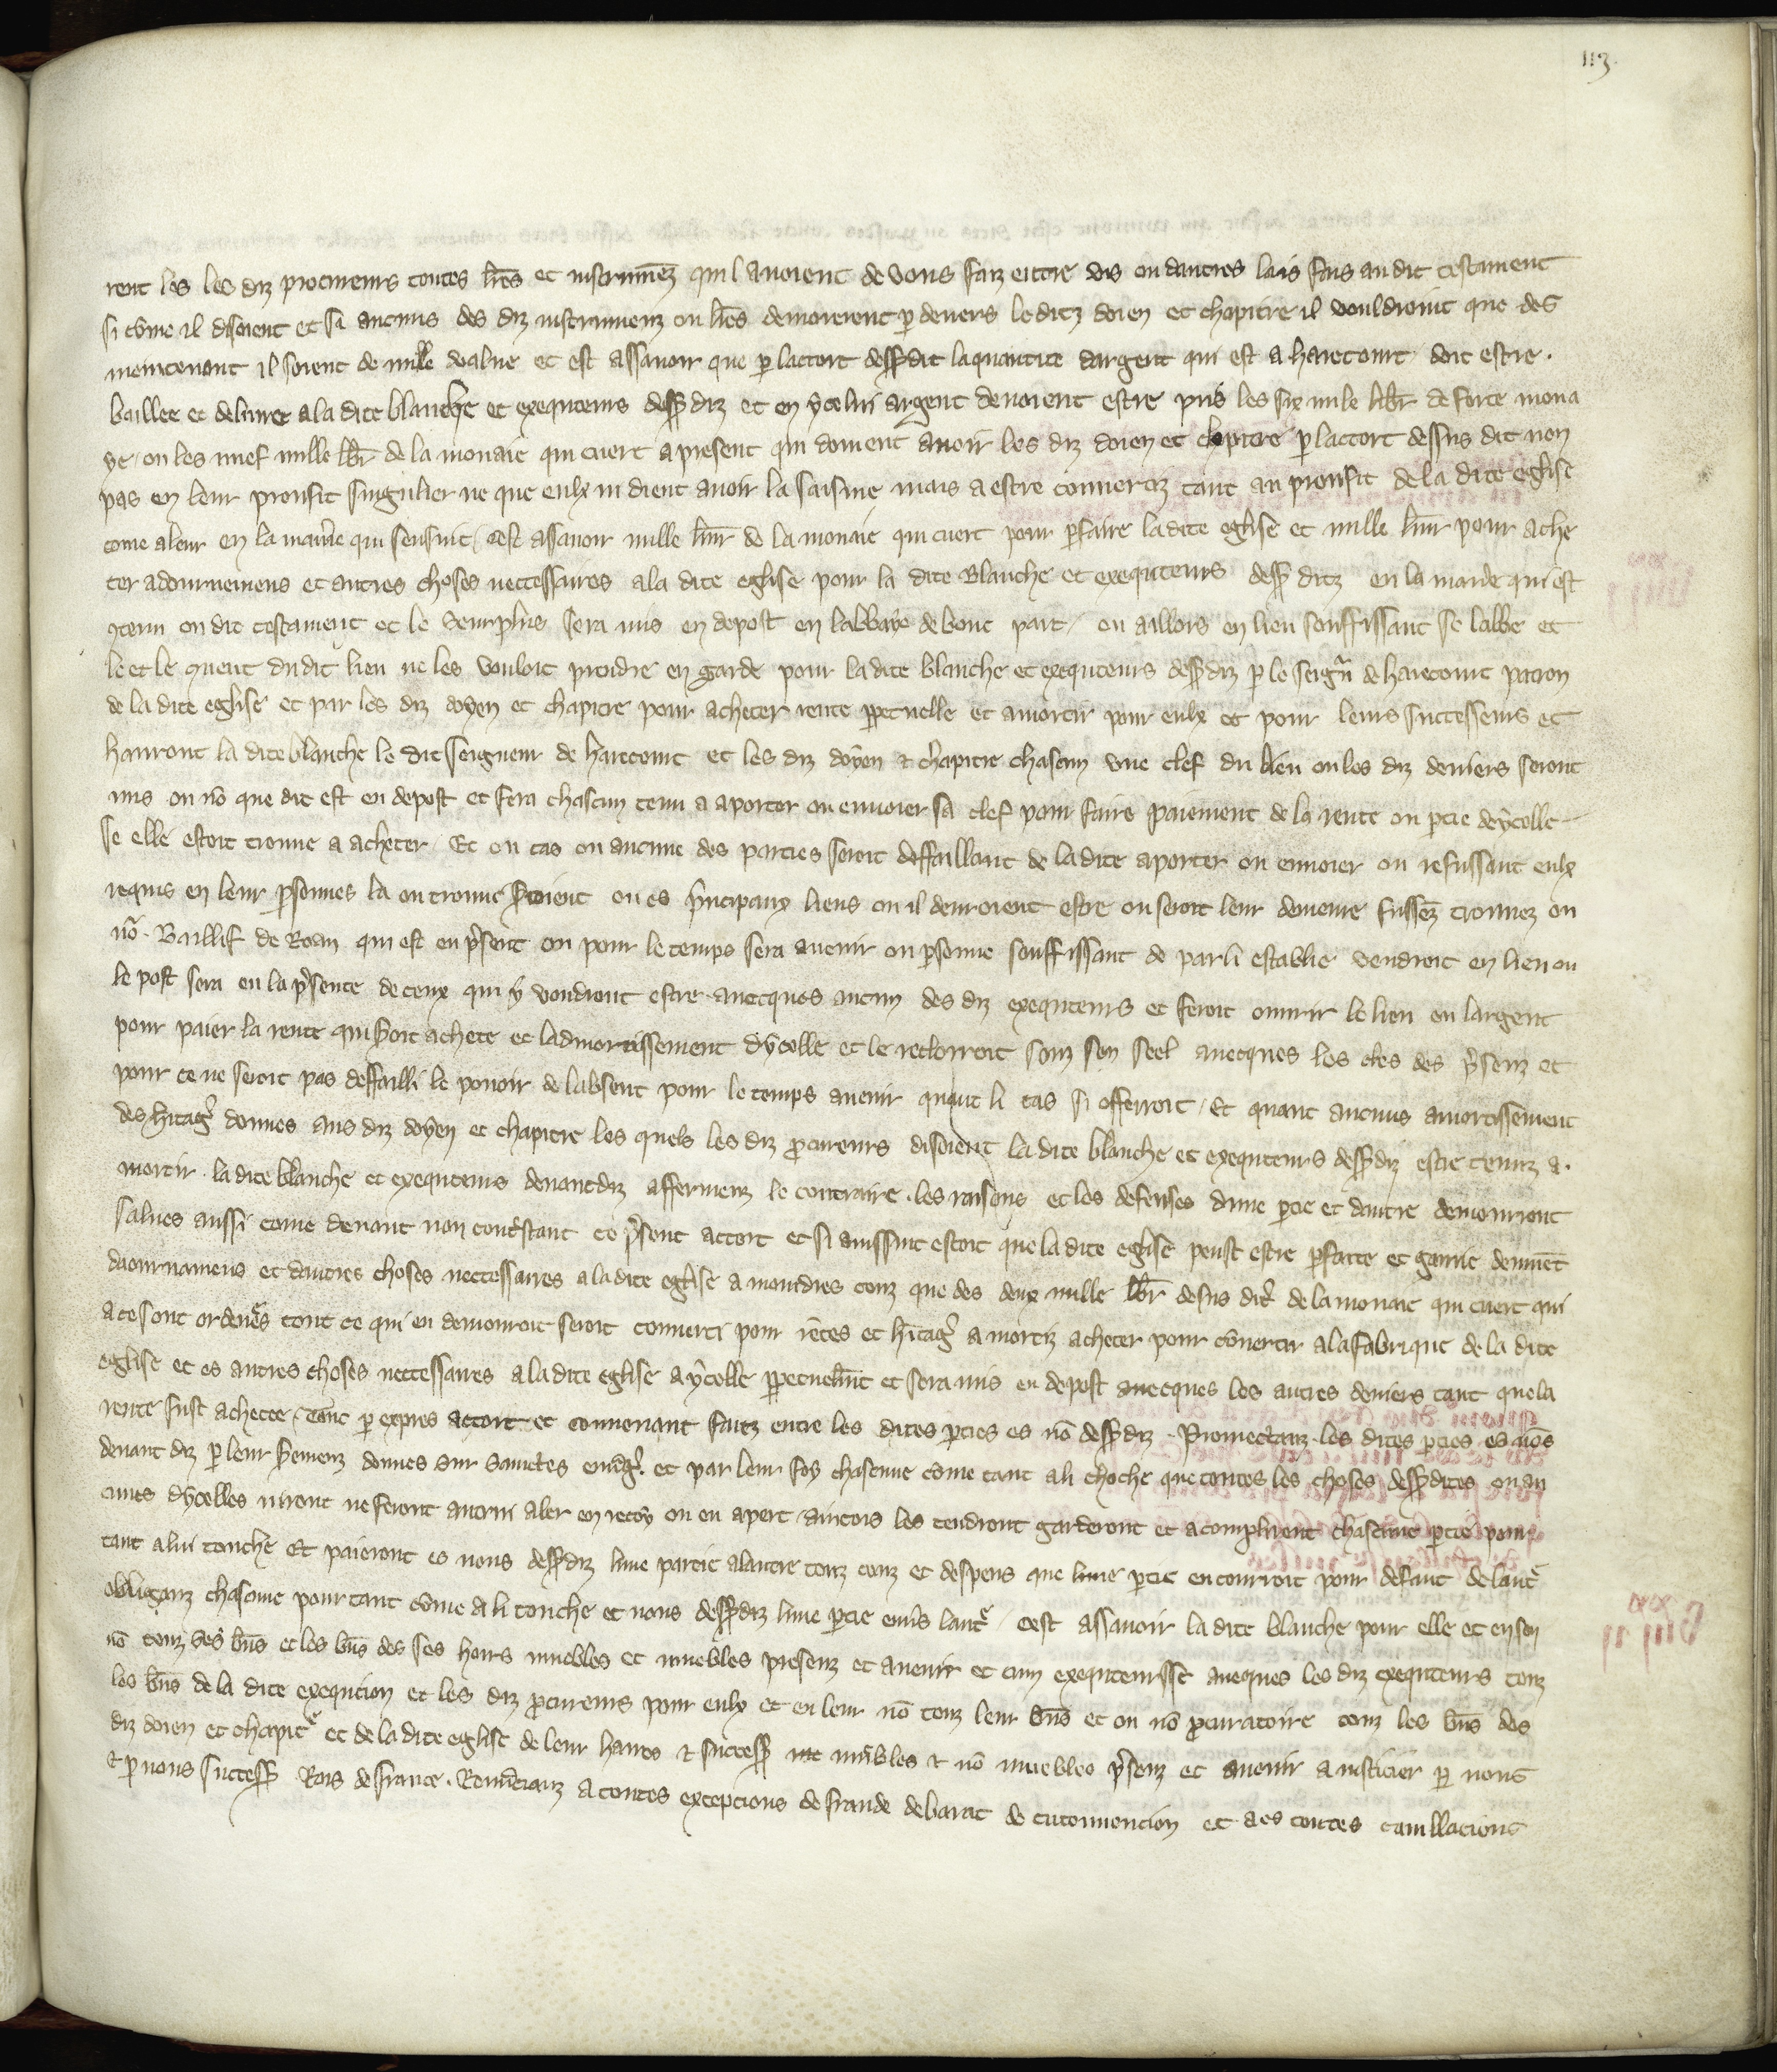 113.
rent les les diz procureurs toutes lr̃es et instrumẽz qui l avoient de vons faiz entre vis ou dautres lais fais au dit testament
si cõme il disoient et si aucuns des diz instrumenz ou lr̃es demorerent p̱ devers le ditz doien et chapitre il vouldroint que des
meintenant il soient de nulle value et est assavoir que p̱ lacort dess̃ dit la quantite dargent qui est a harecourt doit estre.
baillee et delivree a la dite blanche et exequteurs dess̃ diz et en ycelui argent devoient estre pris les six mile libr̃ de forte mona
ye / ou les nuef mille lib̃r de la monaie qui cuert apresent qui doivent avoir les diz doien et chapitre p̱ lacort dessus dit non
pas en leur proufit singulier ne que eulx in dient avoir la saisine mais a estre convertiz tant au proufit de la dite eglise
come a leur en la manie᷑re qui sensuit / cest assavoir mille livr̃ de la monaie qui cuert pour p̱faire la dite eglise et mille livr̃ pour ache
ter adournemens et autres choses neccessaires a la dite eglise pour la dite Blanche et exequteurs dess̃ ditz en la manie᷑ qui est
ꝯtenu ou dit testament et le seurplus sera mis en depost en labbaye de bone part / ou aillors en lieu souffissant se labbe et
le et le quent du dit lieu ne les vouloit prendre en garde pour la dite blanche et exequteurs dess̃ diz p̱ le seign̄ de harecourt patron
de la dite eglise et par les diz doyen et chapitre pour acheter rente p̱petuelle et amortir pour eulx et pour leurs successeurs et
hauront la dite blanche le dit seigneur de harecourt et les diz doyen ⁊ chapitre chascun une clef du lieu ou les diz deniers seront
mis ou nõ que dit est en depost et sera chascun tenu a aporter ou envoier sa clef pour faire paiement de la rente ou p̱tie dycelle
se elle estoit trouve a acheter / Et ou cas ou aucune des parties seroit deffaillant de la dite aporter ou envoier ou refussant eulx
requis en leur p̱sonnes la ou trouve s̃roient ou es p̃ncipaux lieus ou il devroient estre ou seroit leur demeure fussẽz trouvez ou
nr̃e. Baillif de Roan qui est en p̃sent ou pour le temps sera avenir ou p̱sonne souffissant de par li establie vendroit en lieu ou
le post sera en la p̃sence de ceux qui y voudront estre avecques aucun des diz exequteurs et feroit ouvrir le lieu ou largent
pour paier la rente qui s̃oit achete et ladmortissement dycelle et le reclorroit souz son seel avecques les cles des p̃senz et
pour ce ne seroit pas deffailli le povoir de labsent pour le temps avenir quant li cas si offerroit / Et quant aucuns amortissement
des h̃itag̃ donnes aus diz doyen et chapitre les quels les diz p̱cureurs disoient la dite blanche et exequteurs dess̃ diz estre tenuz a.
mortir. la dite blanche et exequteurs devant diz affermenz le contraire. les raisons et les defenses dune p̱tie et dautre demourront
salves aussi come devant non cont̾stant ce p̃sent accort et si aussint estoit que la dite eglise peust estre p̱faite et garnie deuuẽt
daournamens et dautres choses neccessaires a la dite eglise a moindres couz que des deux mille lib̃r desus dit̃ de la monaie qui cuert qui
a ce sont ordene᷑s tout ce qui en demourroit seroit converti pour rẽtes et h̃itag̃ amortiz acheter pour cõvertir a la fabrique de la dite
eglise et es autres choses neccessaires a la dite eglise a ycelle p̱petuelm̃t et sera mis en depost avecques les autres deniers tant que la
rente fust achetee / tout p̱ expres accort et convenant faitz entre les dites p̱ties es nõ dess̃ diz. Promectanz. les dites p̱ties es nõs
devant diz p̱ leur s̃remenz donnes sur sainctes euvãg̃. et par leur foy chascune cõme tant a li thoche que toutes les choses dess̃ dites ou au
cunes dycelles niront ne feront aucun aler en recoy ou en apert / aincois les tendront garderont et acompliront chascune p̱tie pour
tant a lui touche Et paieront es nons dess̃ diz lune partie a lautre touz couz et despens que lune p̱tie encourroit pour defaut de laut᷑
obliganz chascune pour tant cõme a li touche et nons dess̃ diz lune p̱tie enũs laut᷑ / cest assavoir la dite blanche pour elle et en son
nõ touz ses bñs et les bñs des ses hoirs muebles et nmuebles presenz et avenir et cum exequteurisse aveques les diz exequteurs touz
les bñs de la dite exequcion et les diz p̱cureurs pour eulx et en leur nõ touz leur bñs et ou nõ p̱curatoire touz les bñs des
diz doien et chapit᷑ et de la dite eglise de leur haires ⁊ success̃ muebles ⁊ nõ muebles p̃senz et avenir a justicier p̱ nous
⁊ p̱ nous success̃ Rois de france. Renũcianz a toutes excepcions de fraude de barat de circonvencion et a es toutes cavillacions